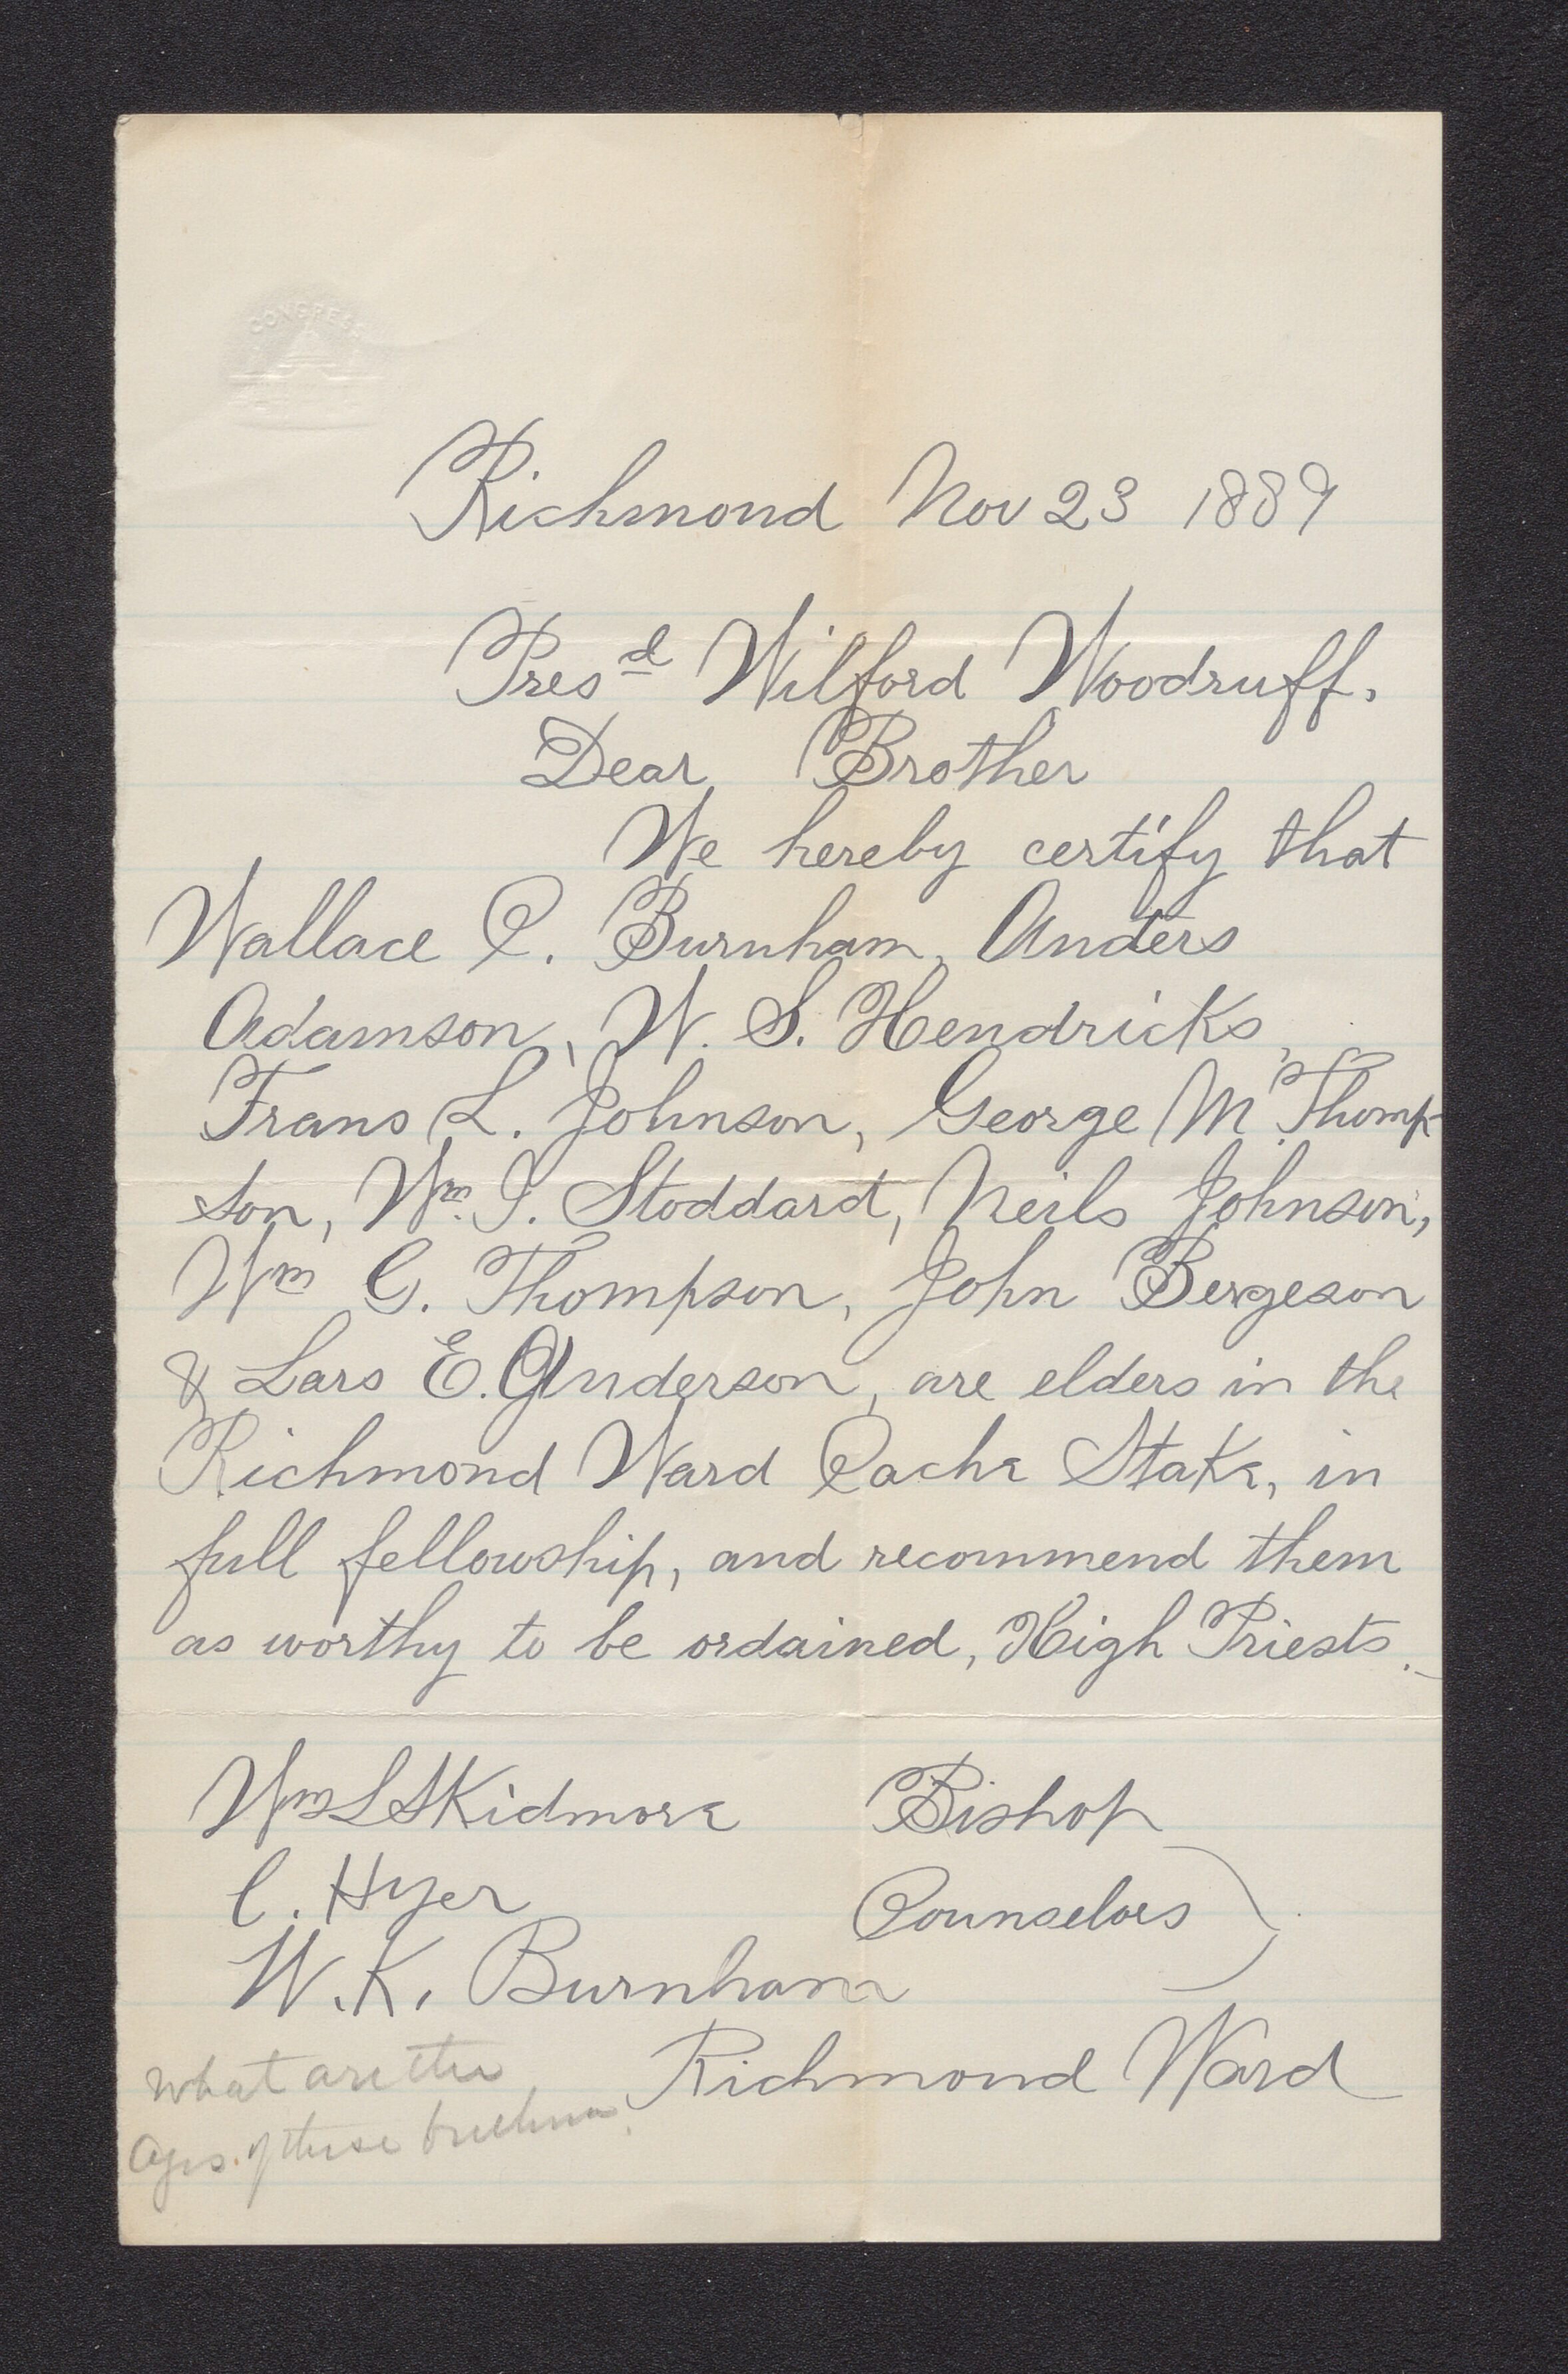 CONGRESS
Richmond Nov 23 1889
Presd Wilford Woodruff.
Dear Brother
We hereby certify that
Wallace C. Burnham, Anders
Adamson, W. S. Hendricks,
Frans L. Johnson, George M. Thomp-
son, Wm. I. Stoddard, Neils Johnson,
Wm G. Thompson, John Bergeson
& Lars E. Anderson, are elders in the
Richmond Ward Cache Stake, in
full fellowship, and recommend them
as worthy to be ordained, High Priests.
Wm L Skidmore Bishop
C. Hyer Counselors
W. K. Burnham
Richmond Ward
What are the
Ages. of these brethren